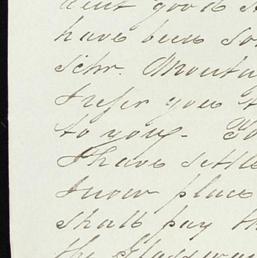 dent good s
have been so
Schr. Montan
I refer you t
to you. To
I have settle
Snow place
shall pay th
the Glassway